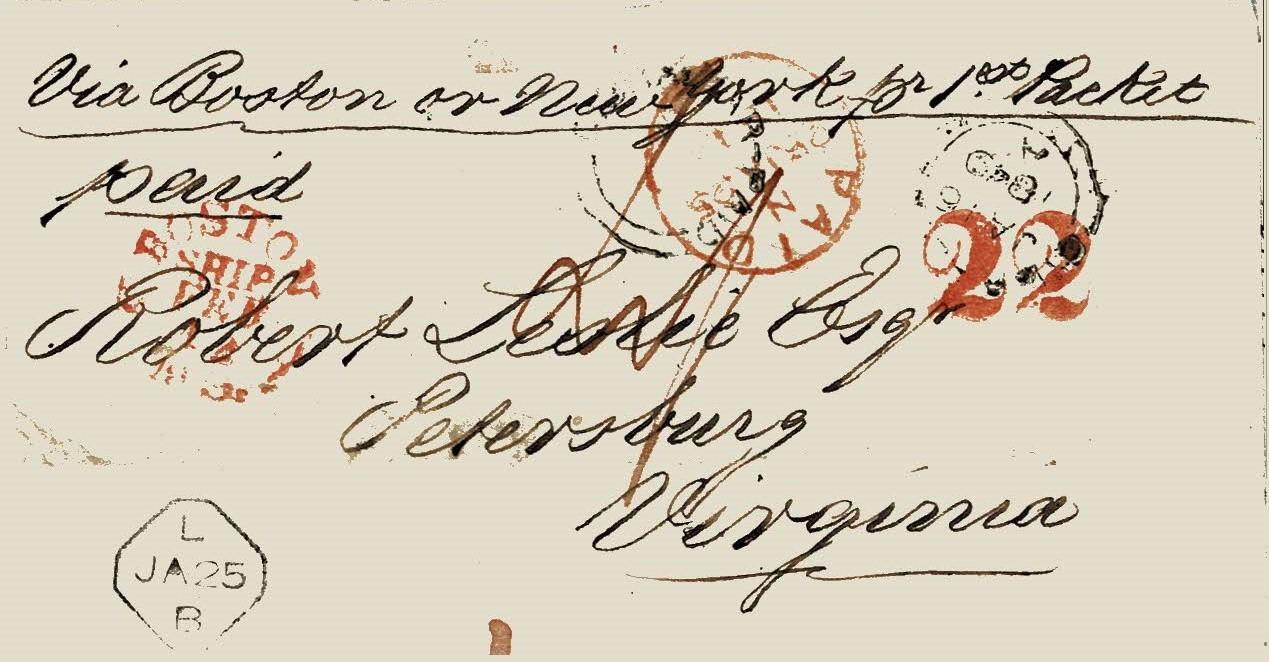 Via Boston or New York pr 1st Packet
paid
PAID
BOSTON
SHIP
22
Robert Leslie Esqr
Petersburg
Virginia
L
JA25
B